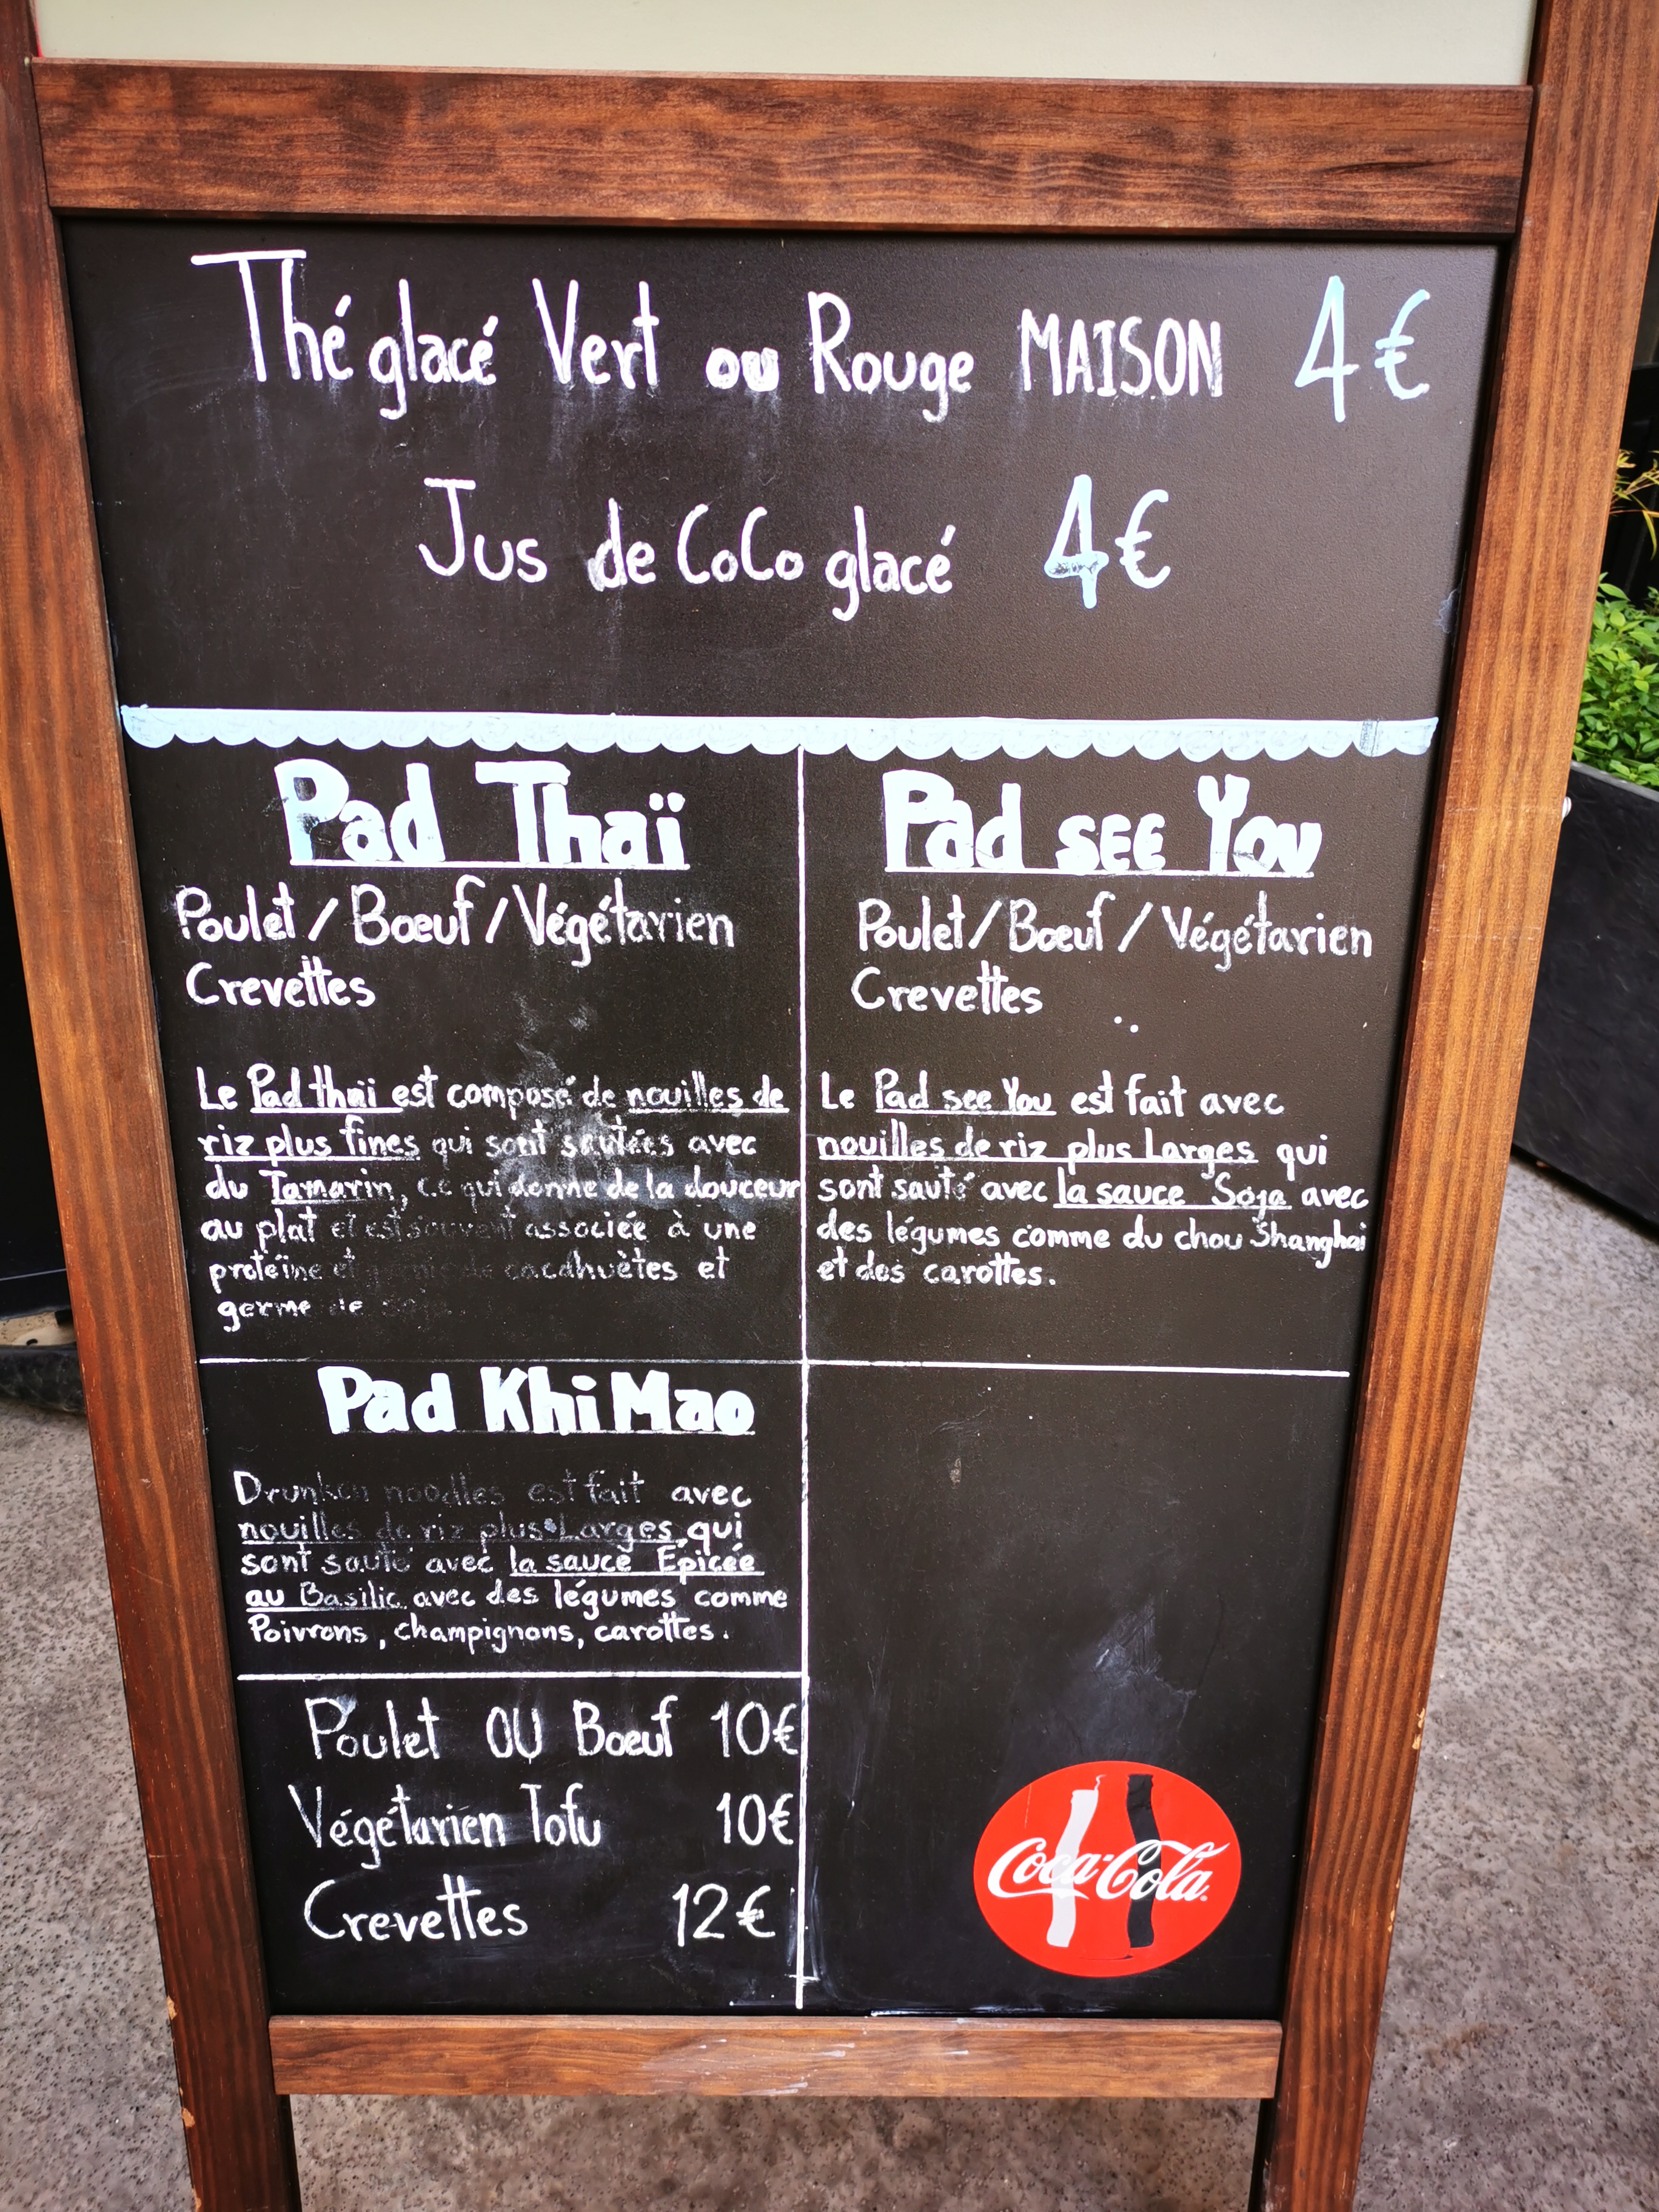 Thé glacé Vert ou Rouge MAISON 4€
Jus de CoCo glacé 4€
Pad Thaï
Poulet / Bœuf / Végétarien
Crevettes
Le Pad thaï est composé de nouilles de
riz plus fines qui sont sautées avec
du Tamarin, ce qui donne de la douceur
au plat et est souvent associée à une
protéine et cacahuètes et
germe de
Pad SEE You
Poulet / Bœuf / Végétarien
Crevettes
Le Pad see You est fait avec
nouilles de riz plus Larges qui
sont sauté avec la sauce Soja avec
des légumes comme du chou Shanghai
et des carottes.
Pad Khi Mao
Drunken noodles est fait avec
nouilles de riz plus Larges qui
sont sauté avec la sauce Epicée
au Basilic avec des légumes comme
Poivrons, champignons, carottes.
Poulet OU Bœuf 10€
Végétarien Tofu 10€
Crevettes 12€
Coca-Cola